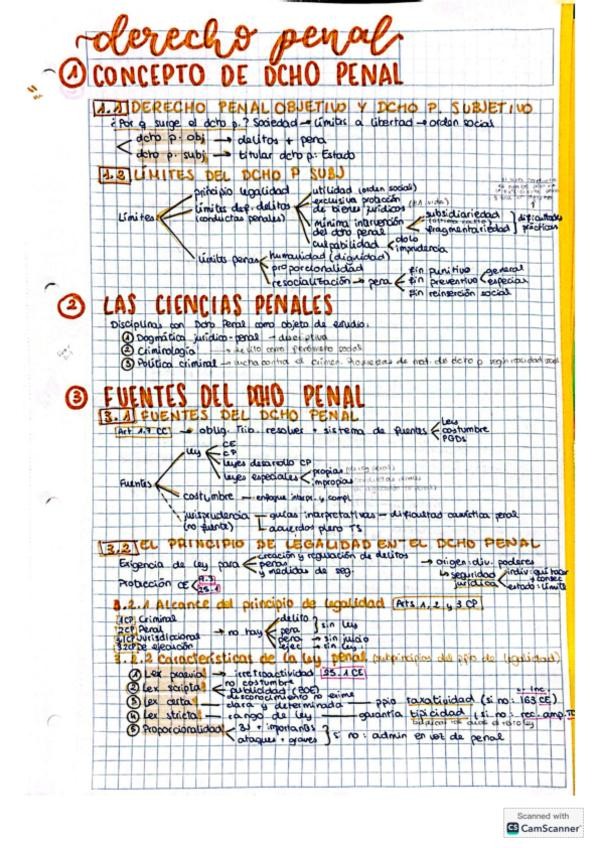 derecho penal
① CONCEPTO DE DCHO PENAL
1.1 DERECHO PENAL OBJETIVO Y DCHO P. SUBJETIVO
¿Por q surge el dcto p.? Sociedad → Límites a libertad → orden social
dcto p. obj → delitos + pena
dcto p. subj → titular dcto p: Estado
1.2 LÍMITES DEL DCHO P SUBJ
Límites
principio legalidad
límites def. delitos
(conductas penales)
utilidad (orden social)
exclusiva protección
de bienes jurídicos
mínima intervención
del dcto penal
subsidiariedad
fragmentariedad
dificultades
prácticas
culpabilidad
dolo
imprudencia
límites penas
humanidad (dignidad)
proporcionalidad
resocialización → pena
fin punitivo
fin preventivo
general
especial
fin reinserción social
② LAS CIENCIAS PENALES
Disciplinas con Dcto Penal como objeto de estudio:
① Dogmática jurídico-penal →
② Criminología → delito como fenómeno social
③ Política criminal → lucha contra el crimen.
③ FUENTES DEL DCHO PENAL
3.1 FUENTES DEL DCHO PENAL
Art 1.7 CC → oblig. Trib. resolver + sistema de fuentes
Ley
costumbre
PGDs
Fuentes
ley
CE
CP
leyes desarrollo CP
leyes especiales
propias
impropias
costumbre — enfoque interpr. y compl.
jurisprudencia
(no fuente)
guías interpretativas — dificultad casuística penal
acuerdos pleno TS
3.2 EL PRINCIPIO DE LEGALIDAD EN EL DCHO PENAL
Exigencia de ley para
creación y regulación de delitos
penas
y medidas de seg.
→ origen: div. poderes
→ seguridad
jurídica
estado: límite
Protección CE
9.3
25.1
3.2.1 Alcance del principio de legalidad Arts 1, 2 y 3 CP
1CP Criminal
2CP Penal
3.1CP Jurisdiccional
3.2CP De ejecución
→ no hay
delito
pena
sin ley
pena → sin juicio
ejec → sin ley
3.2.2 Características de la ley penal (subprincipios del ppio de legalidad)
① Lex praevia → irretroactividad 25.1 CE
② Lex scripta
no costumbre
publicidad (BOE)
desconocimiento no exime
③ Lex certa — clara y determinada — ppio taxatividad (si no: 163 CE)
④ Lex stricta — rango de ley — garantía tipicidad (si no: rec. amp. TC
⑤ Proporcionalidad
BJ + importantes
ataques + graves
si no: admin en vez de penal
Scanned with
CS CamScanner